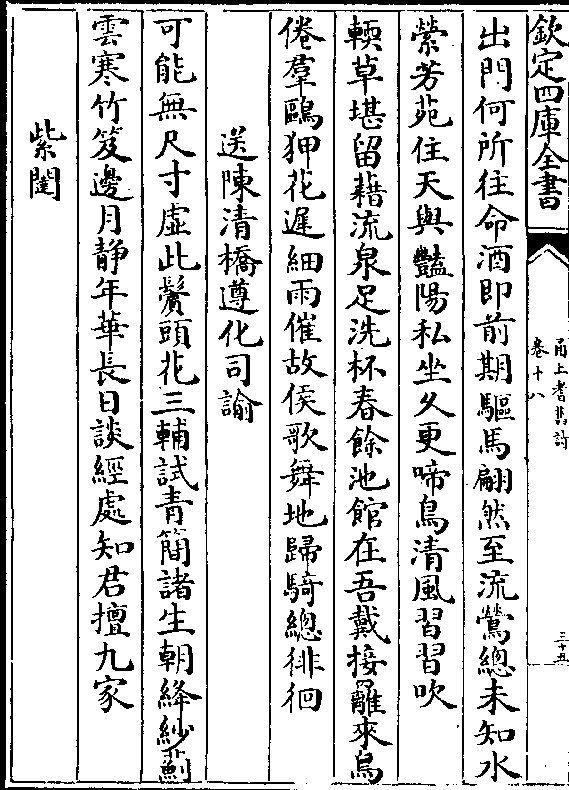 欽定四庫全書
甬上耆舊詩
卷十八
三十五
出門何所往命酒即前期驅馬翩然至流鶯總未知水
縈芳苑住天與豔陽私坐乆更啼鳥清風習習吹
輭草堪留藉流泉足洗杯春餘池館在吾戴接䍦來烏
倦羣鷗狎花遲細雨催故侯歌舞地歸騎總徘徊
送陳清橋遵化司諭
可能無尺寸虛此鬢頭花三輔試青簡諸生朝絳紗薊
雲寒竹笈邊月靜年華長日談經處知君擅九家
紫閨